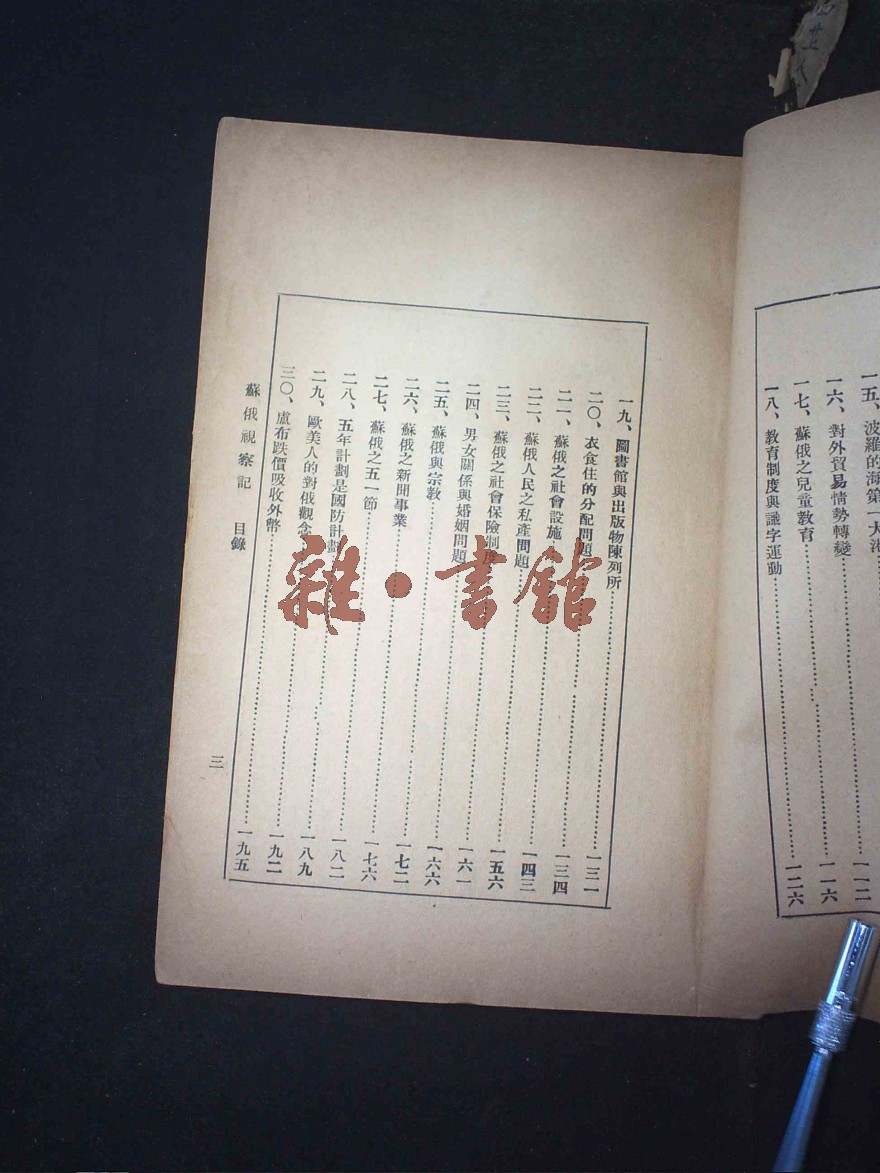 一五、波羅的海第一大
一六、對外貿易情勢轉變……一一二
一七、蘇俄之兒童教育……一一六
一八、教育制度與識字運動……一二六
一九、圖書館與出版物陳列所……一三一
二〇、衣食住的分配問題……一三四
二一、蘇俄之社會設施……一四三
二二、蘇俄人民之私產問題……一五六
二三、蘇俄之社會保險制度……一六一
二四、男女關係與婚姻問題……一六六
二五、蘇俄與宗教……一七二
二六、蘇俄之新聞事業……一七六
二七、蘇俄之五一節……一八二
二八、五年計劃是國防計劃……一八九
二九、歐美人的對俄觀念……一九二
三〇、盧布跌價吸收外幣……一九五
蘇俄視察記 目錄
三
雜·書館